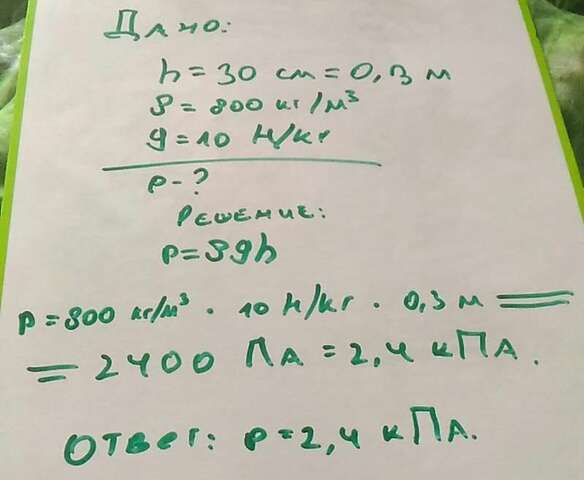 Дано:
h = 30 см = 0,3 м
ρ = 800 кг/м³
g = 10 Н/кг
p - ?
Решение:
p = ρgh
p = 800 кг/м³ · 10 Н/кг · 0,3 м =
= 2400 Па = 2,4 кПа.
Ответ: p = 2,4 кПа.